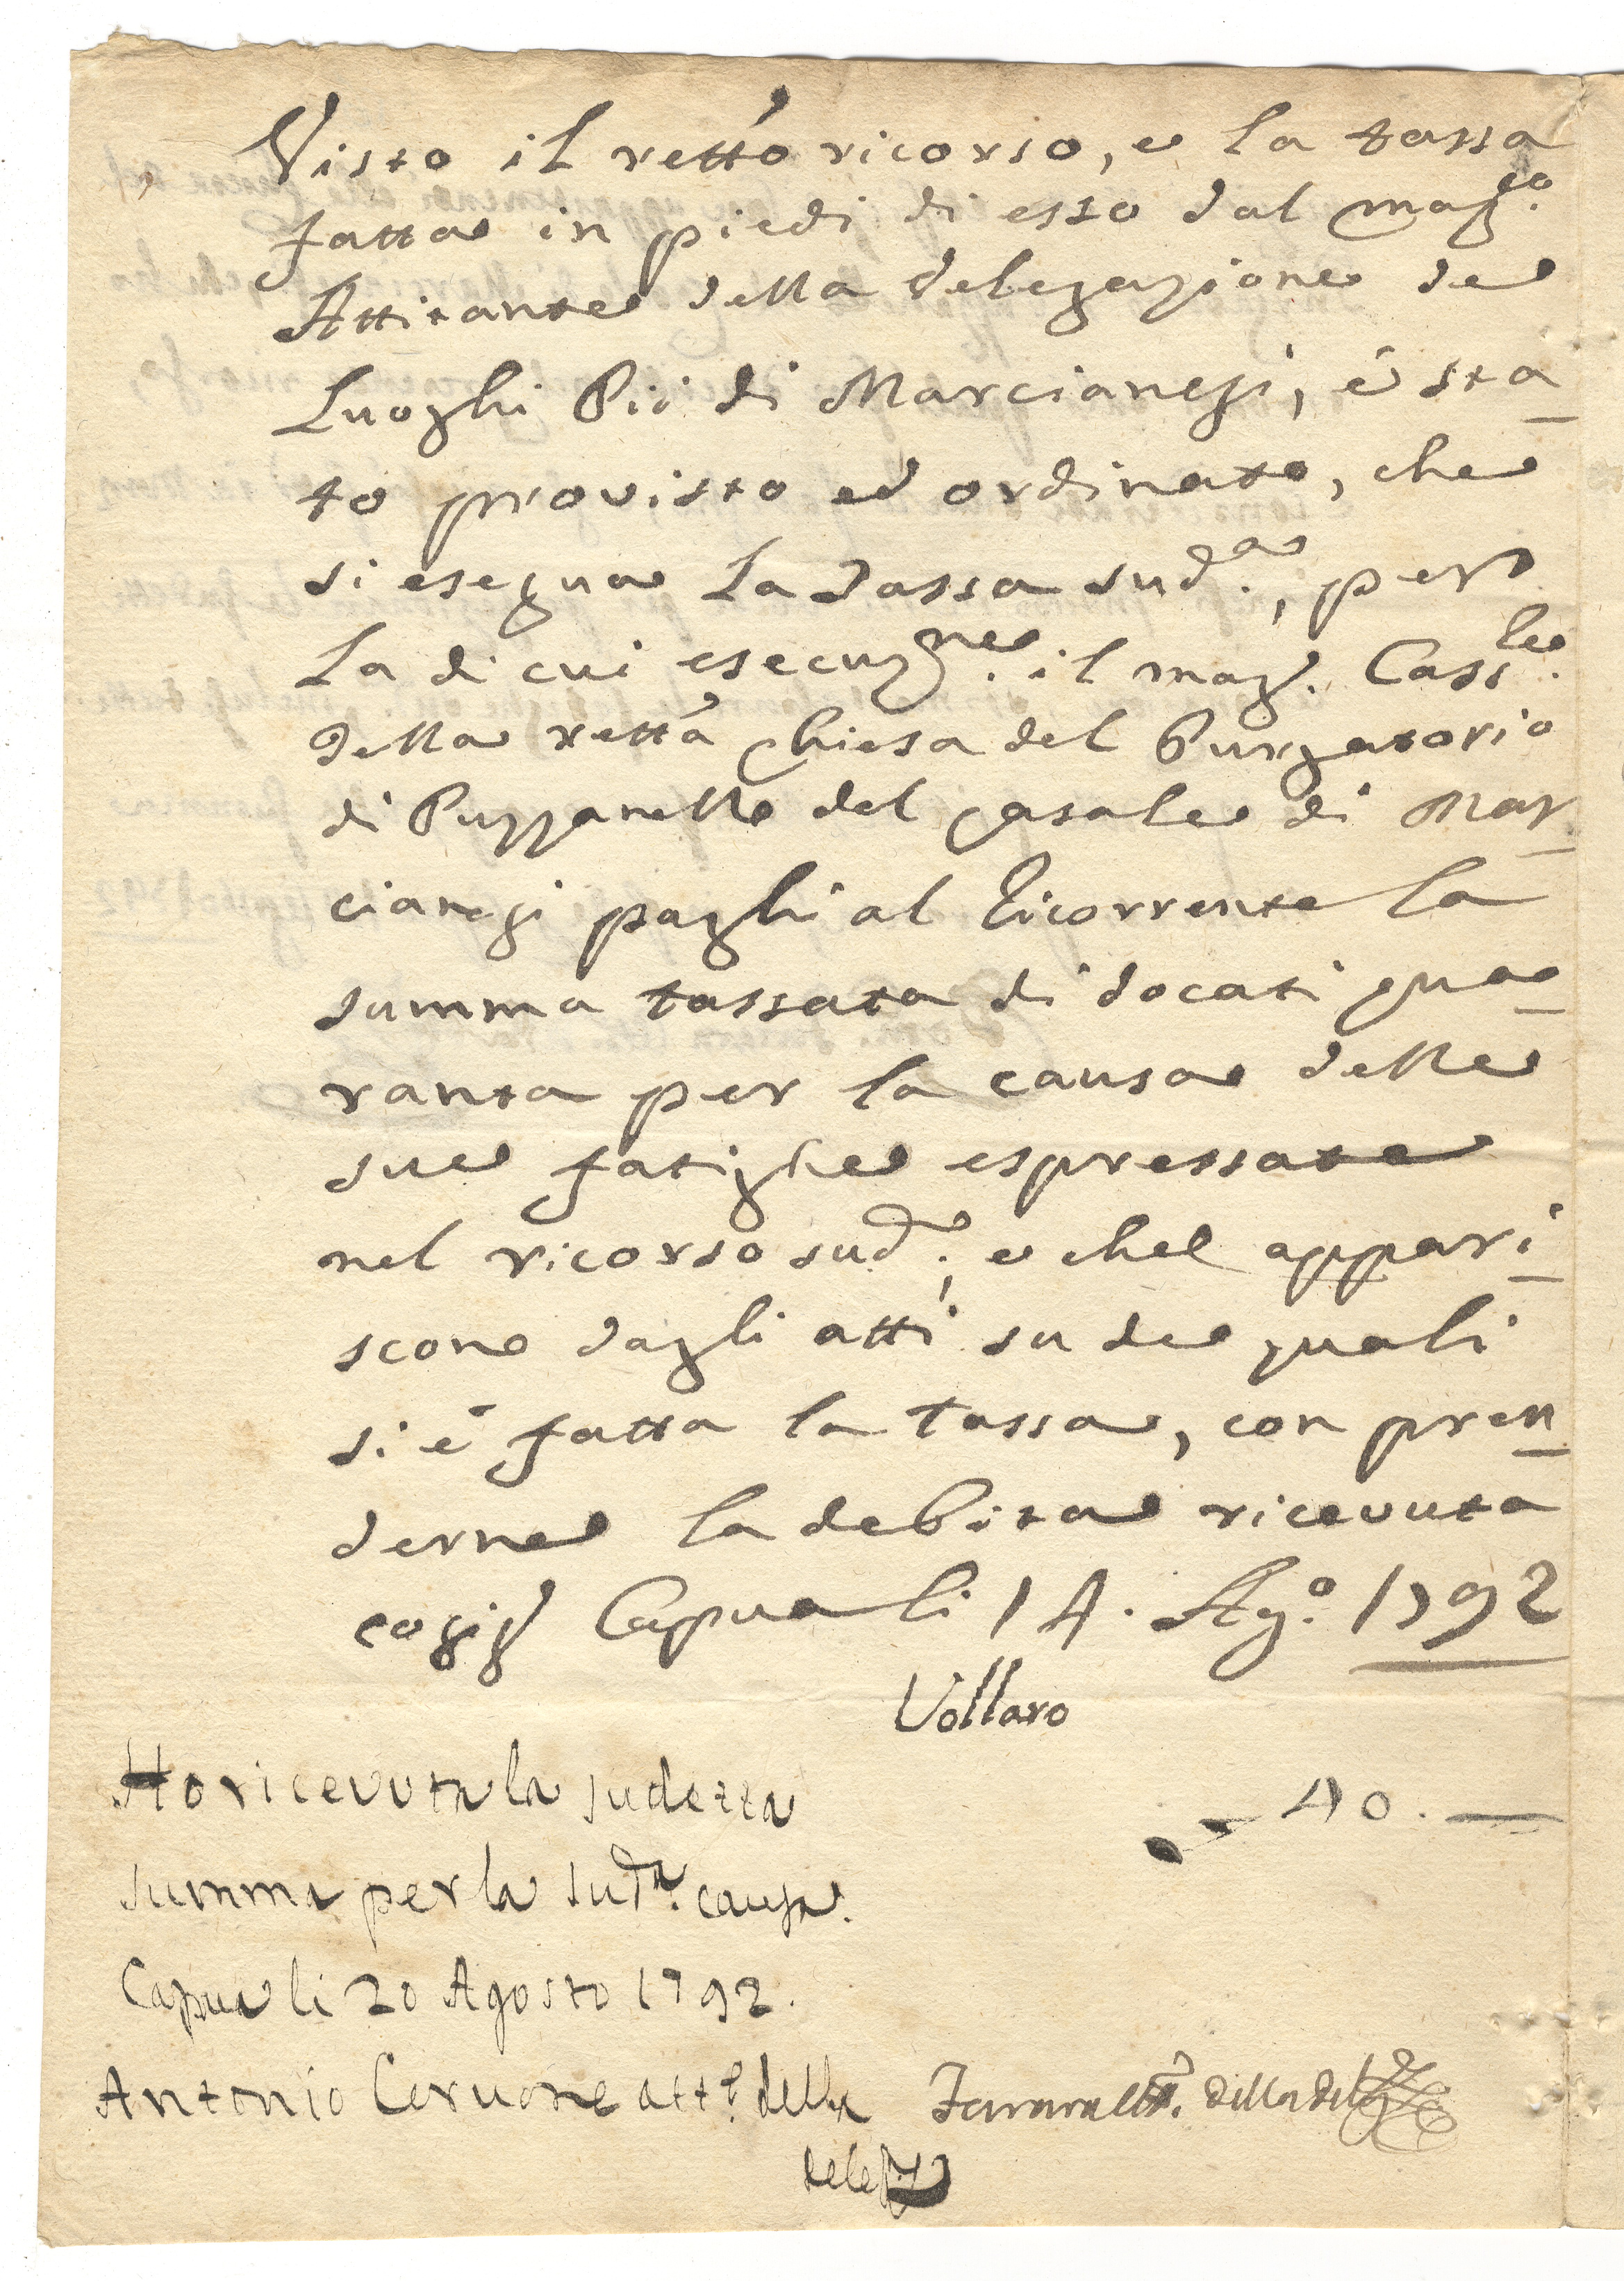 Visto il rettõ ricorso, e la tassa
fatta in piedi di esso dal mag.co
Attitante della Delegazione de
Luoghi Pii di Marcianesi, è sta-
to provisto ed ordinato, che
si esegua la Tassa sud.a, per
la di cui esecuz.ne il mag. Cass.re
della rettã Chiesa del Purgatorio
di Puzzanello del Casale di Mar-
cianesi paghi al Ricorrente la
summa tassata di docati qua-
ranta per la causa delle
sue fatighe espressate
nel ricorso sud.o, e chel appari-
scono dagli atti su de quali
si è fatta la tassa, con pren-
derne la debita ricevuta
Capua li 14. Ag.o 1792
Vollaro
Ho ricevuta la sudetta
40. —
summa per la sud.a causa.
Capua li 20 Agosto 1792.
Antonio Ceruone att.e della
dele